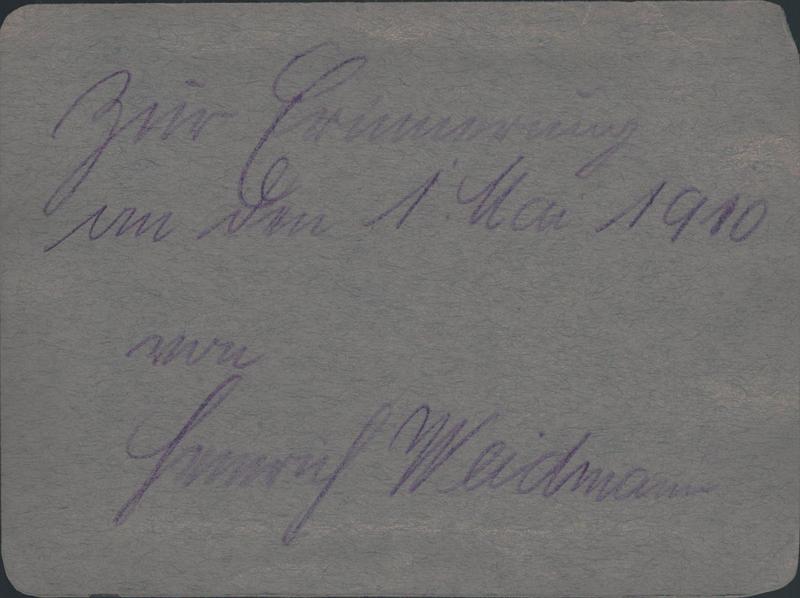 Zur Erinnerung
an den 1. Mai 1910
von
Heinrich Weidmann